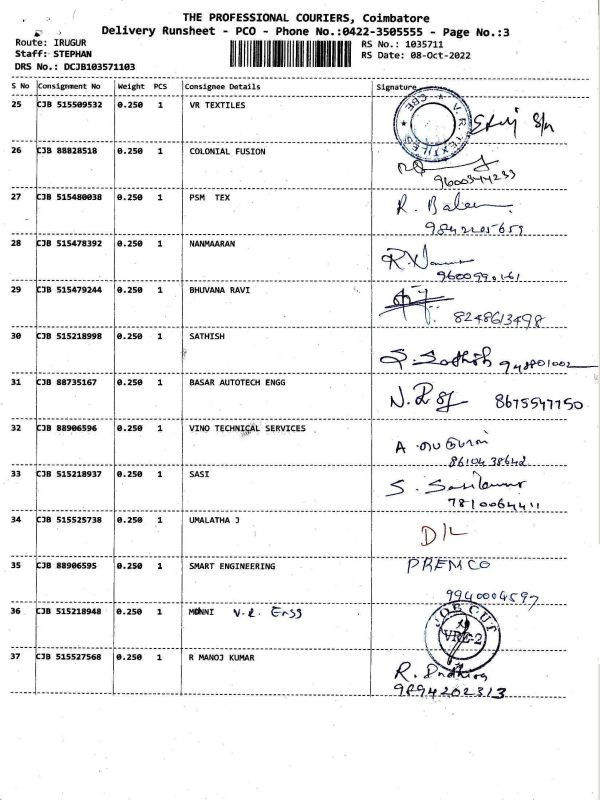 THE PROFESSIONAL COURIERS, Coimbatore
Delivery Runsheet - PCO - Phone No.:0422-3505555 - Page No.:3
Route: IRUGUR RS No.: 1035711
Staff: STEPHAN RS Date: 08-Oct-2022
DRS No.: DCJB103571103
S No Consignment No Weight PCS Consignee Details Signature
25 CJB 515509532 0.250 1 VR TEXTILES V.R. TEXTILES CBE
26 CJB 88828518 0.250 1 COLONIAL FUSION
9600344233
27 CJB 515480038 0.250 1 PSM TEX R.
28 CJB 515478392 0.250 1 NANMAARAN
9600990161
29 CJB 515479244 0.250 1 BHUVANA RAVI
8248613498
30 CJB 515218998 0.250 1 SATHISH
S. Sathish
31 CJB 88735167 0.250 1 BASAR AUTOTECH ENGG
8675547750
32 CJB 88906596 0.250 1 VINO TECHNICAL SERVICES A
8610438642
33 CJB 515218937 0.250 1 SASI S. Sasikumar
7810064411
34 CJB 515525738 0.250 1 UMALATHA J
D/L
35 CJB 88906595 0.250 1 SMART ENGINEERING PREMCO
9940004597
36 CJB 515218948 0.250 1 MONNI V.R. Engg
37 CJB 515527568 0.250 1 R MANOJ KUMAR R.
9894202313